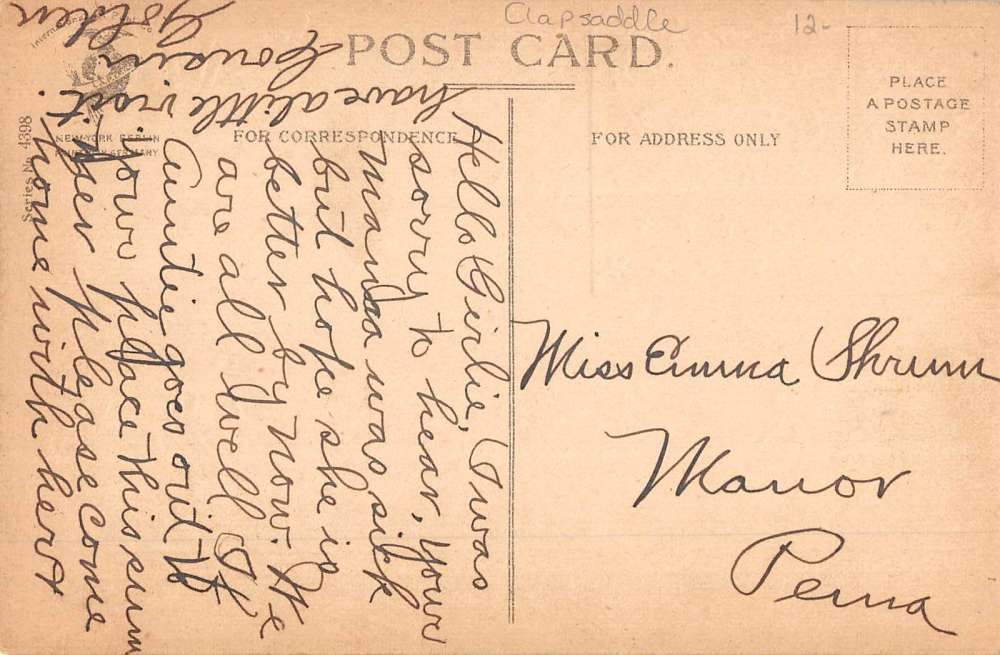 Clapsaddle
12-
POST CARD.
PLACE
A POSTAGE
STAMP
HERE.
FOR CORRESPONDENCE
FOR ADDRESS ONLY
NEW-YORK BERLIN
Series No. 4398
Hello Girlie, I was
sorry to hear, Your
Mamma was sick
but hope she is
better by now. We
are all well If
Auntie goes out to
your place this sum
mer please come
home with her &
have a little visit.
Cousin
Golden
Miss Emma Shrum
Manor
Penna